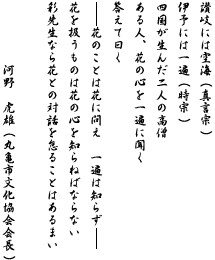 讃岐には空海（真言宗）
伊予には一遍（時宗）
四国が生んだ二人の高僧
ある人、花の心を一遍に聞く
答えて曰く
――花のことは花に問え　一遍は知らず――
花を扱うものは花の心を知らねばならない
彩先生なら花との対話を怠ることはあるまい
河野　虎雄（丸亀市文化協会会長）